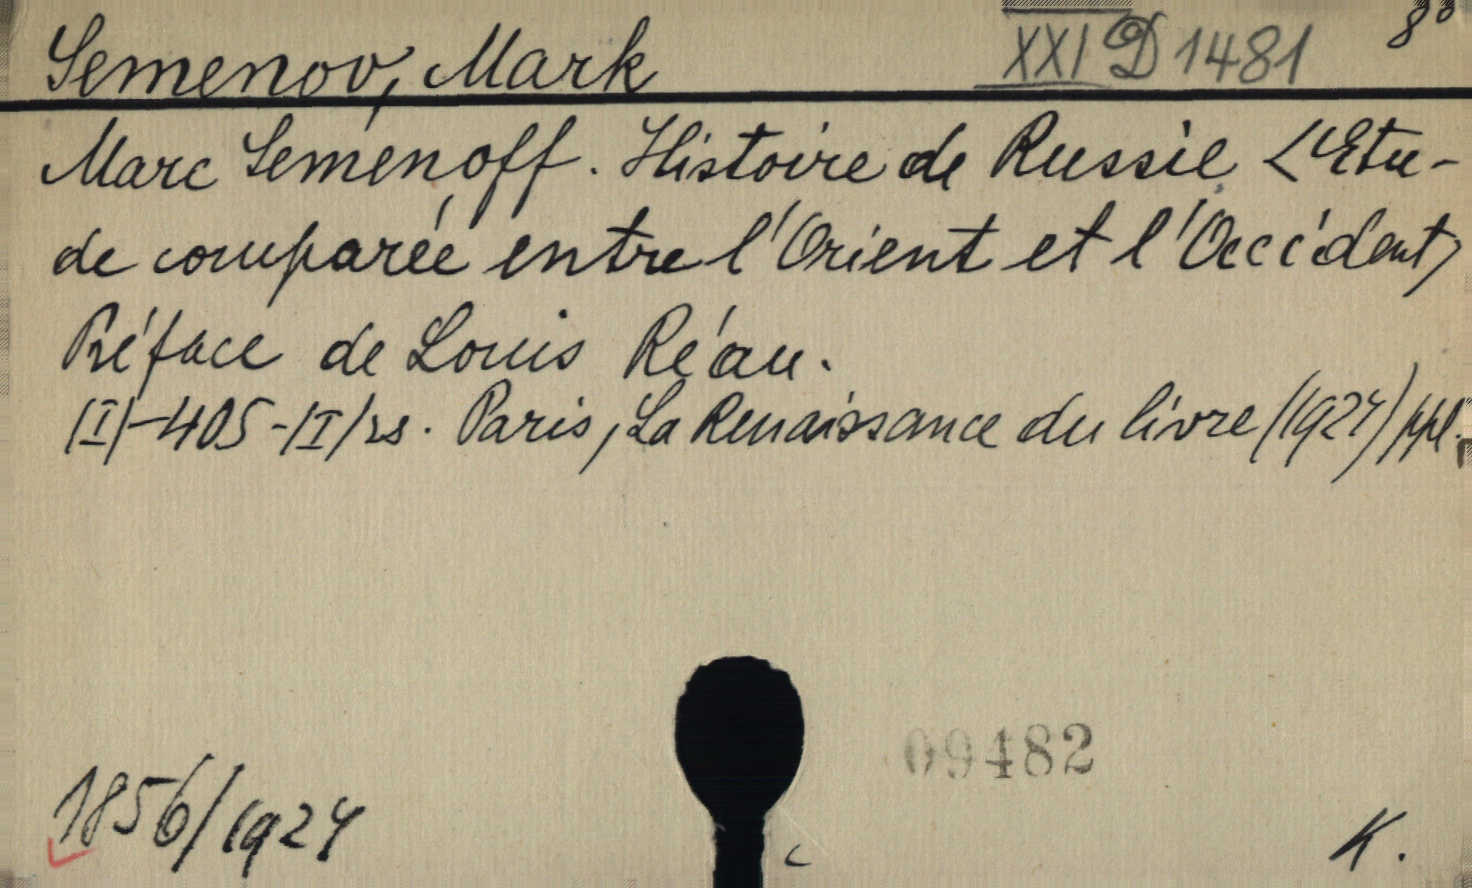 8°
Semenov, Mark XXI D 1481
Marc Semenoff. Histoire de Russie <Etu-
de comparée entre l'Orient et l'Occident>
Préface de Louis Réau.
/I/-405-/I/ rs. Paris, La Renaissance du livre /1924/ ppl.
09482
1856/1924
K.